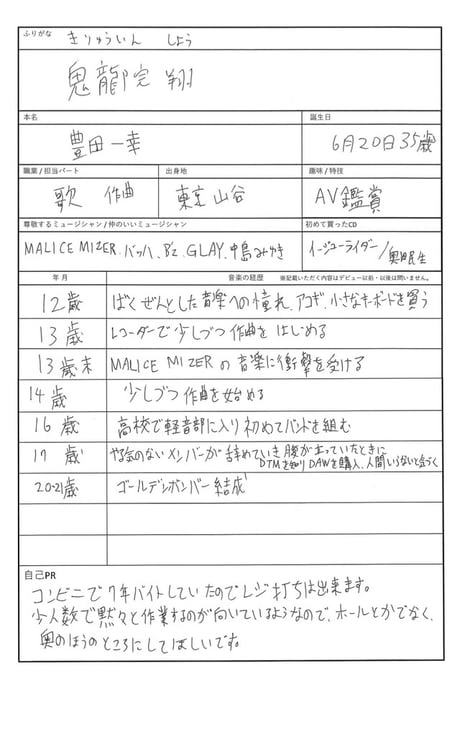 ふりがな
きりゅういん しょう
鬼龍院 翔
本名
誕生日
豊田 一幸
6月20日35歳
職業/担当パート
出身地
趣味/特技
歌 作曲
東京 山谷
AV鑑賞
尊敬するミュージシャン/仲のいいミュージシャン
初めて買ったCD
MALICE MIZER、バッハ、B'z、GLAY、中島みゆき
イージューライダー/奥田民生
年月
音楽の経歴
※記載いただく内容はデビュー以前・以後は問いません。
12歳
ばくぜんとした音楽への憧れ、アコギ、小さなキーボードを買う
13歳
レコーダーで少しづつ作曲をはじめる
13歳末
MALICE MIZERの音楽に衝撃を受ける
14歳
少しづつ作曲を始める
16歳
高校で軽音部に入り初めてバンドを組む
17歳
やる気のないメンバーが辞めていき腹が立っていたときに
DTMを知りDAWを購入、人間いらないと気づく
20-21歳
ゴールデンボンバー結成
自己PR
コンビニで7年バイトしていたのでレジ打ちは出来ます。
少人数で黙々と作業するのが向いているようなので、ホールとかでなく、
奥のほうのところにしてほしいです。